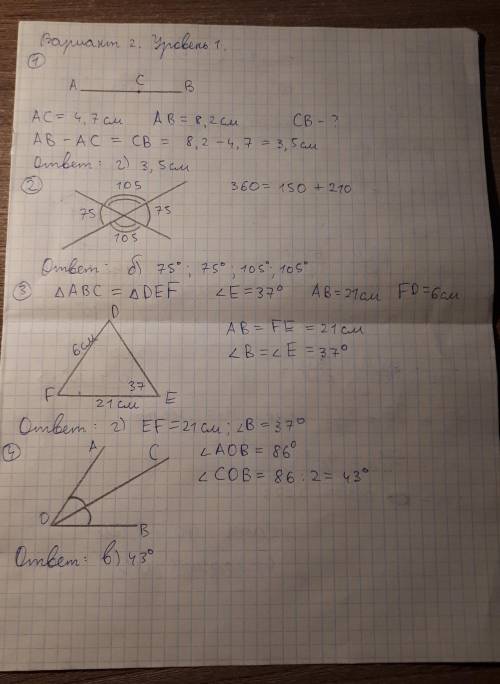 Вариант 2. Уровень 1.
①
A C B
AC = 4,7 см AB = 8,2 см CB - ?
AB - AC = CB = 8,2 - 4,7 = 3,5 см
Ответ: г) 3,5 см
②
105
75 75
105
360 = 150 + 210
Ответ: б) 75°; 75°; 105°; 105°
③ △ABC = △DEF ∠E = 37° AB = 21 см FD = 6 см
D
6 см
F 37 E
21 см
AB = FE = 21 см
∠B = ∠E = 37°
Ответ: г) EF = 21 см; ∠B = 37°
④
A C
O B
∠AOB = 86°
∠COB = 86 : 2 = 43°
Ответ: в) 43°